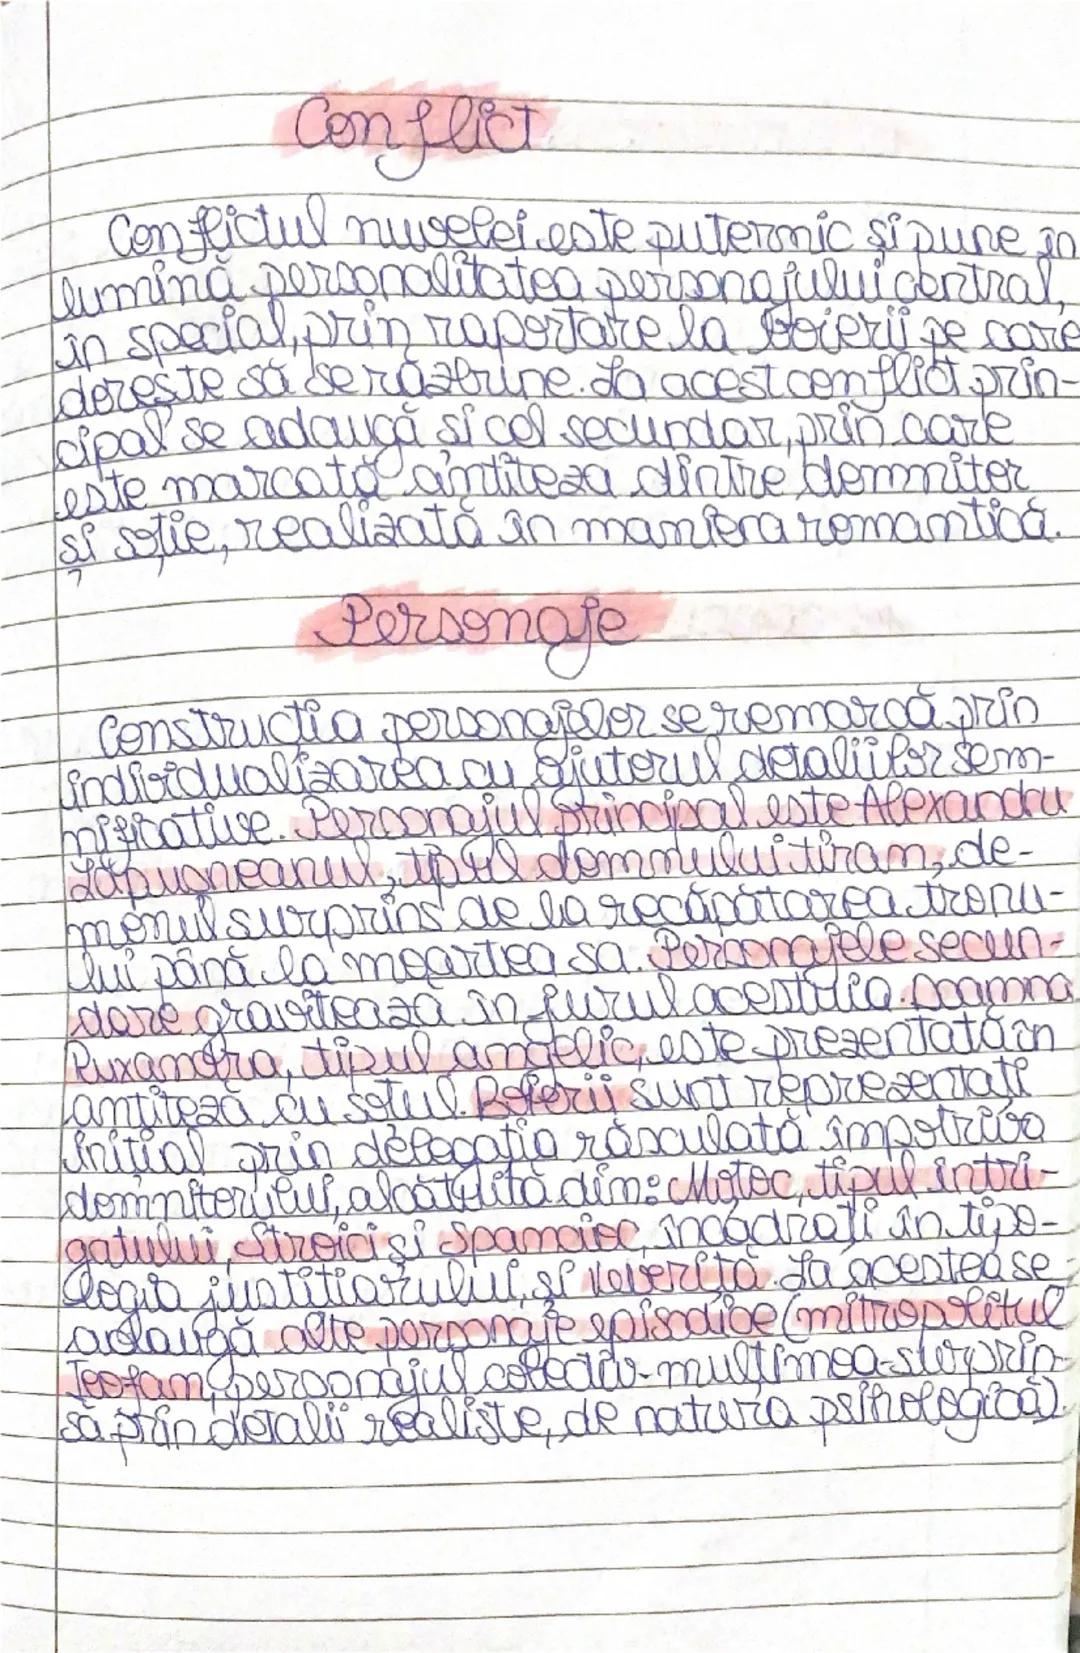 Conflict
Conflictul nuvelei este puternic și pune în
lumină personalitatea personajului central,
în special, prin raportare la boierii pe care
dorește să se răzbune. La acest conflict prin-
cipal se adaugă și cel secundar, prin care
este marcată antiteza dintre domnitor
și soție, realizată în maniera romantică.
Personaje
Construcția personajelor se remarcă prin
individualizarea cu ajutorul detaliilor sem-
nificative. Personajul principal este Alexandru
Lăpușneanul, tipul domnului tiran, de-
monul surprins de la recăpătarea tronu-
lui până la moartea sa. Personajele secun-
dare gravitează în jurul acestuia. Doamna
Ruxandra, tipul angelic, este prezentată în
antiteză cu soțul. Boierii sunt reprezentați
inițial prin delegația răsculată împotriva
domnitorului, alcătuită din: Moțoc, tipul intri-
gatului, Stroici și Spancioc, încadrați în tipo-
logia justițiarului, și Veveriță. La acestea se
adaugă alte personaje episodice (mitropolitul
Teofan, personajul colectiv-mulțimea-surprin-
să prin detalii realiste, de natură psihologică).